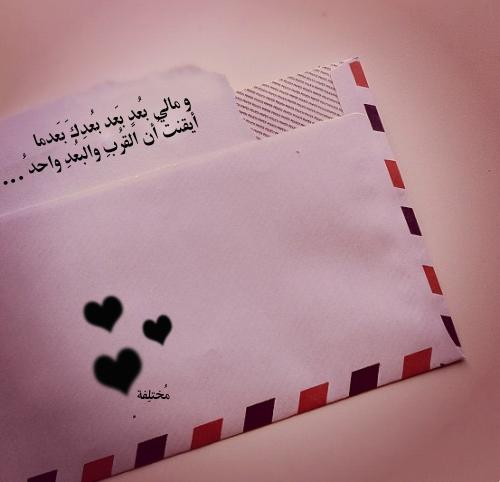 و مالي بُعدٍ بَعد بُعدكَ بَعدما
أيقنت أن القرُبِ والبعُدِ واحدُ ...
مُختلِفة